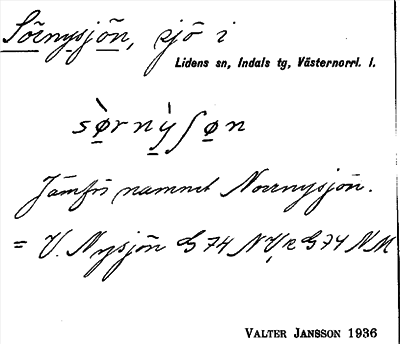 Sörnysjön, sjö i
Lidens sn, Indals tg, Västernorrl. l.
sø̀rnỳʃøn
Jämför namnet Norrnysjön.
= V. Nysjön G 74 NV, R G 74 NM
VALTER JANSSON 1936